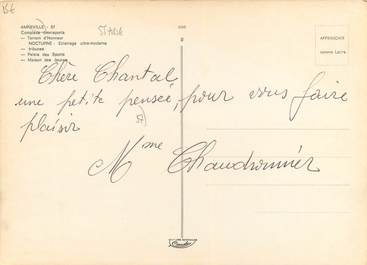 15€
AMNEVILLE - 57
Complexe Omnisports
— Terrain d'Honneur
NOCTURNE : Eclairage ultra-moderne
— tribunes
— Palais des Sports
— Maison des Jeunes
STADE
AFFRANCHIR
comme Lettre
Chère Chantal
une petite pensée, pour vous faire
plaisir
57
Mme Chaudronnier